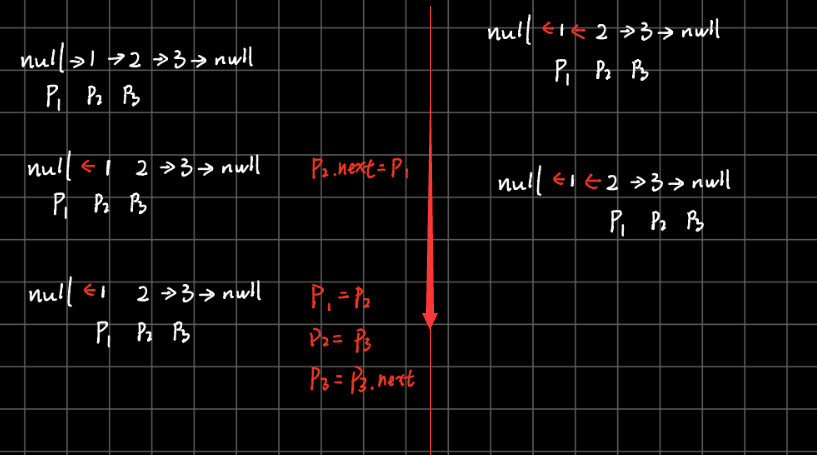 null→1→2→3→null
P₁ P₂ P₃
null←1 2→3→null P₂.next=P₁
P₁ P₂ P₃
null←1 2→3→null P₁=P₂
P₁ P₂ P₃ P₂=P₃
P₃=P₃.next
null←1←2→3→null
P₁ P₂ P₃
null←1←2→3→null
P₁ P₂ P₃